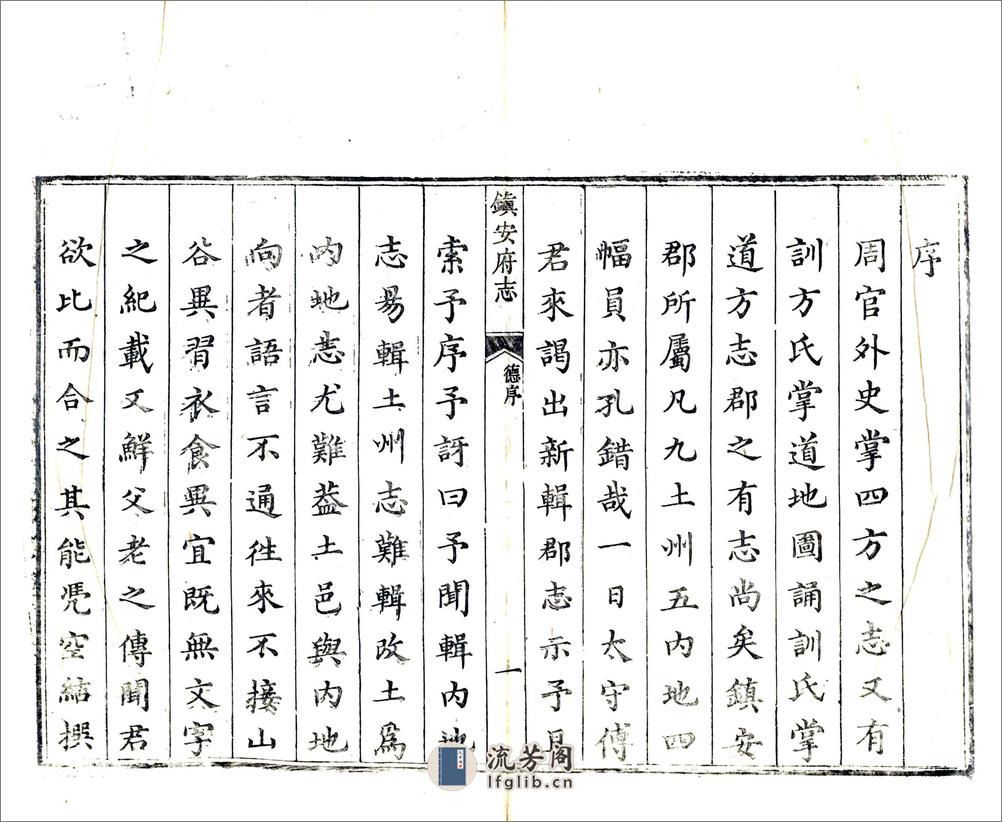 序
周官外史掌四方之志又有
訓方氏掌道地圖誦訓氏掌
道方志郡之有志尚矣鎮安
郡所屬凡九土州五内地四
幅員亦孔錯哉一日太守傅
君來謁出新輯郡志示予且
鎮安府志
德序
一
索予序予訝曰予聞輯内地
志昜輯土州志難輯改土爲
内地志尤難葢土邑與内地
向者語言不通徃來不接山
谷異習衣食異宜既無文字
之紀載又鮮父老之傳聞君
欲比而合之其能凴空結撰
流芳阁
lfglib.cn